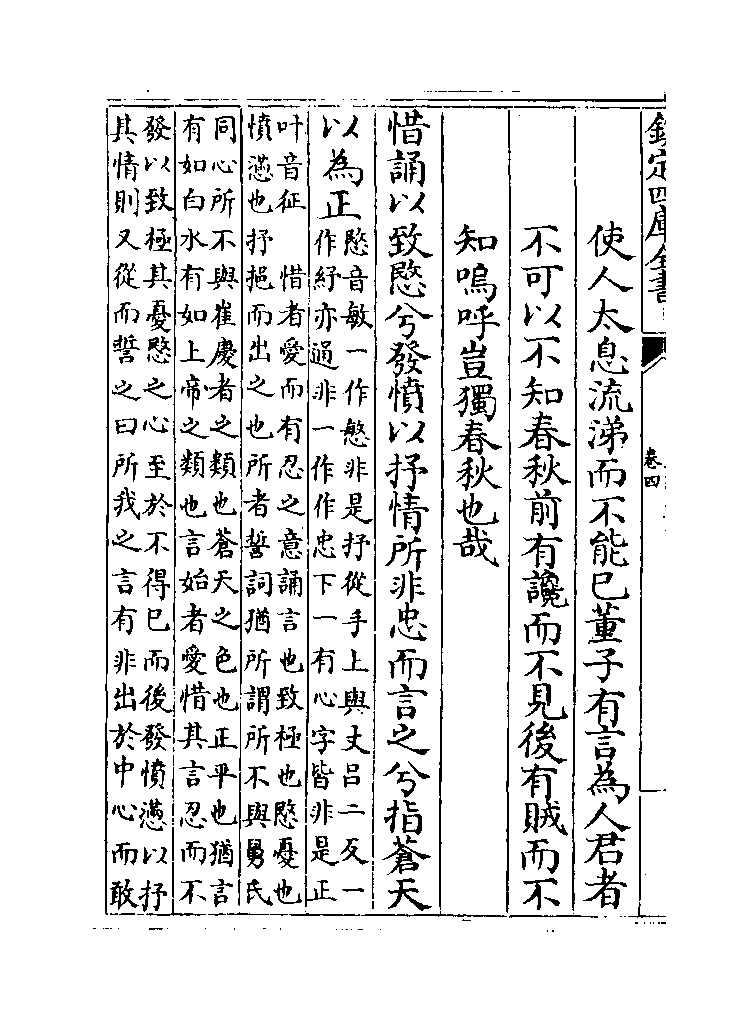 欽定四庫全書
卷四
使人太息流涕而不能已董子有言為人君者
不可以不知春秋前有讒而不見後有賊而不
知嗚呼豈獨春秋也哉
惜誦以致愍兮發憤以抒情所非忠而言之兮指蒼天
以為正
愍音敏一作慜非是抒從手上與丈吕二反一
作紓亦通非一作作忠下一有心字皆非是正
叶音征　惜者愛而有忍之意誦言也致極也愍憂也
憤懣也抒挹而出之也所者誓詞猶所謂所不與舅氏
同心所不與崔慶者之類也蒼天之色也正平也猶言
有如白水有如上帝之類也言始者愛惜其言忍而不
發以致極其憂愍之心至於不得已而後發憤懣以抒
其情則又從而誓之曰所我之言有非出於中心而敢